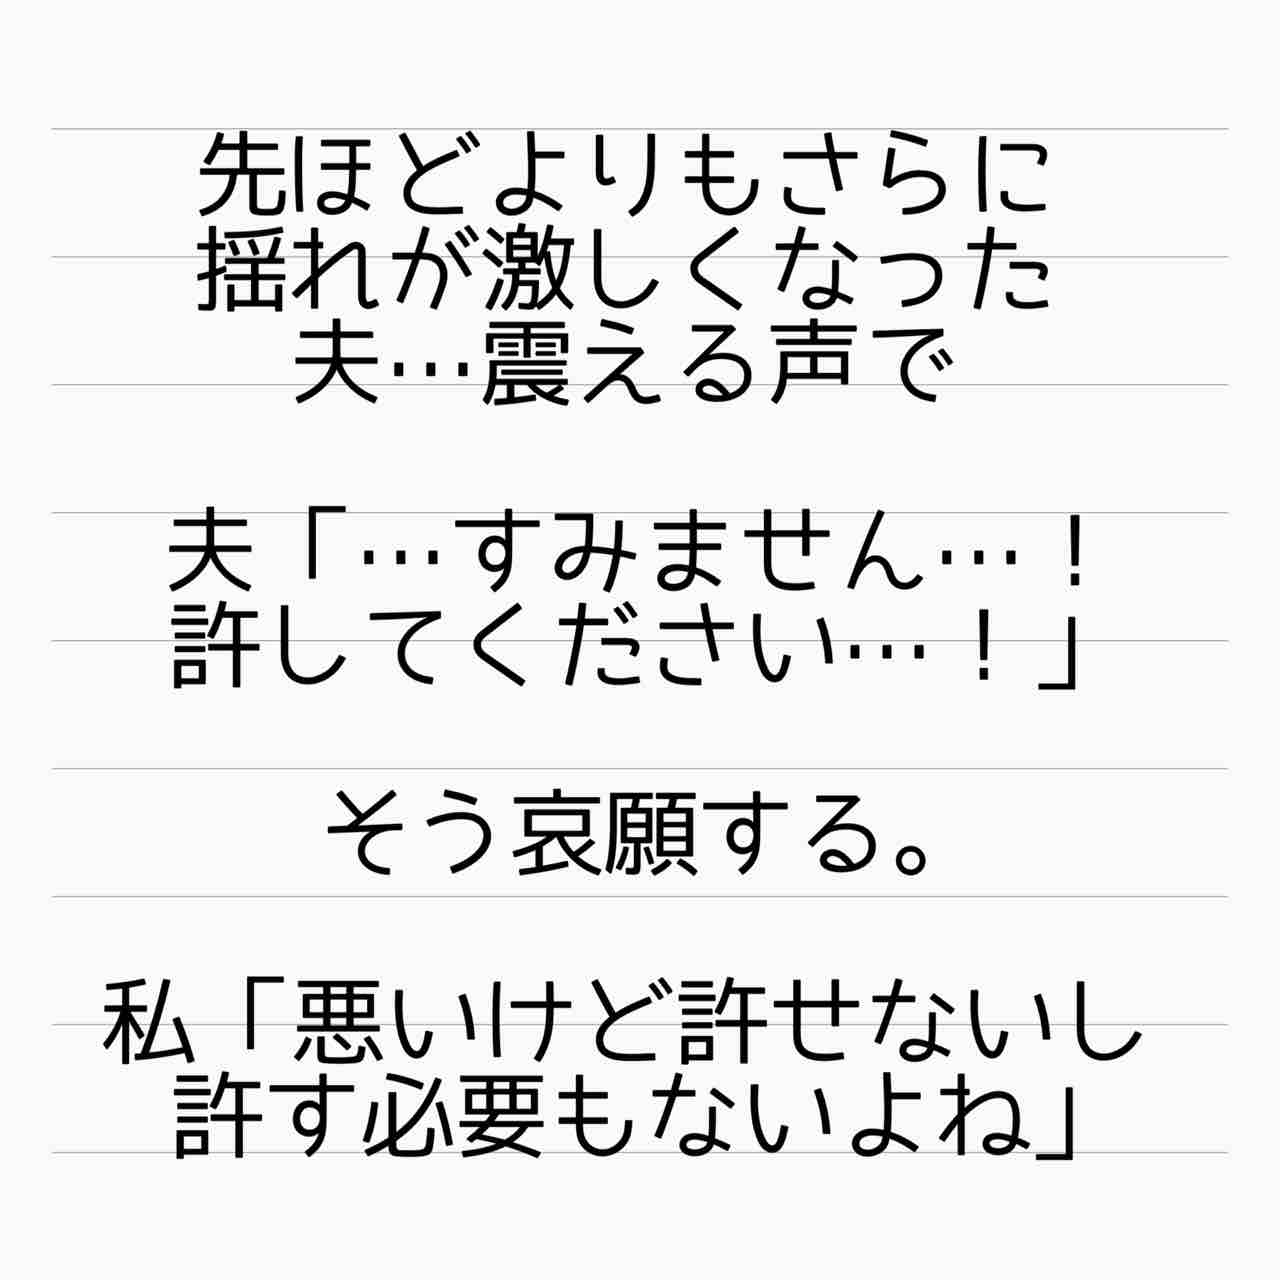 先ほどよりもさらに
揺れが激しくなった
夫…震える声で
夫「…すみません…！
許してください…！」
そう哀願する。
私「悪いけど許せないし
許す必要もないよね」